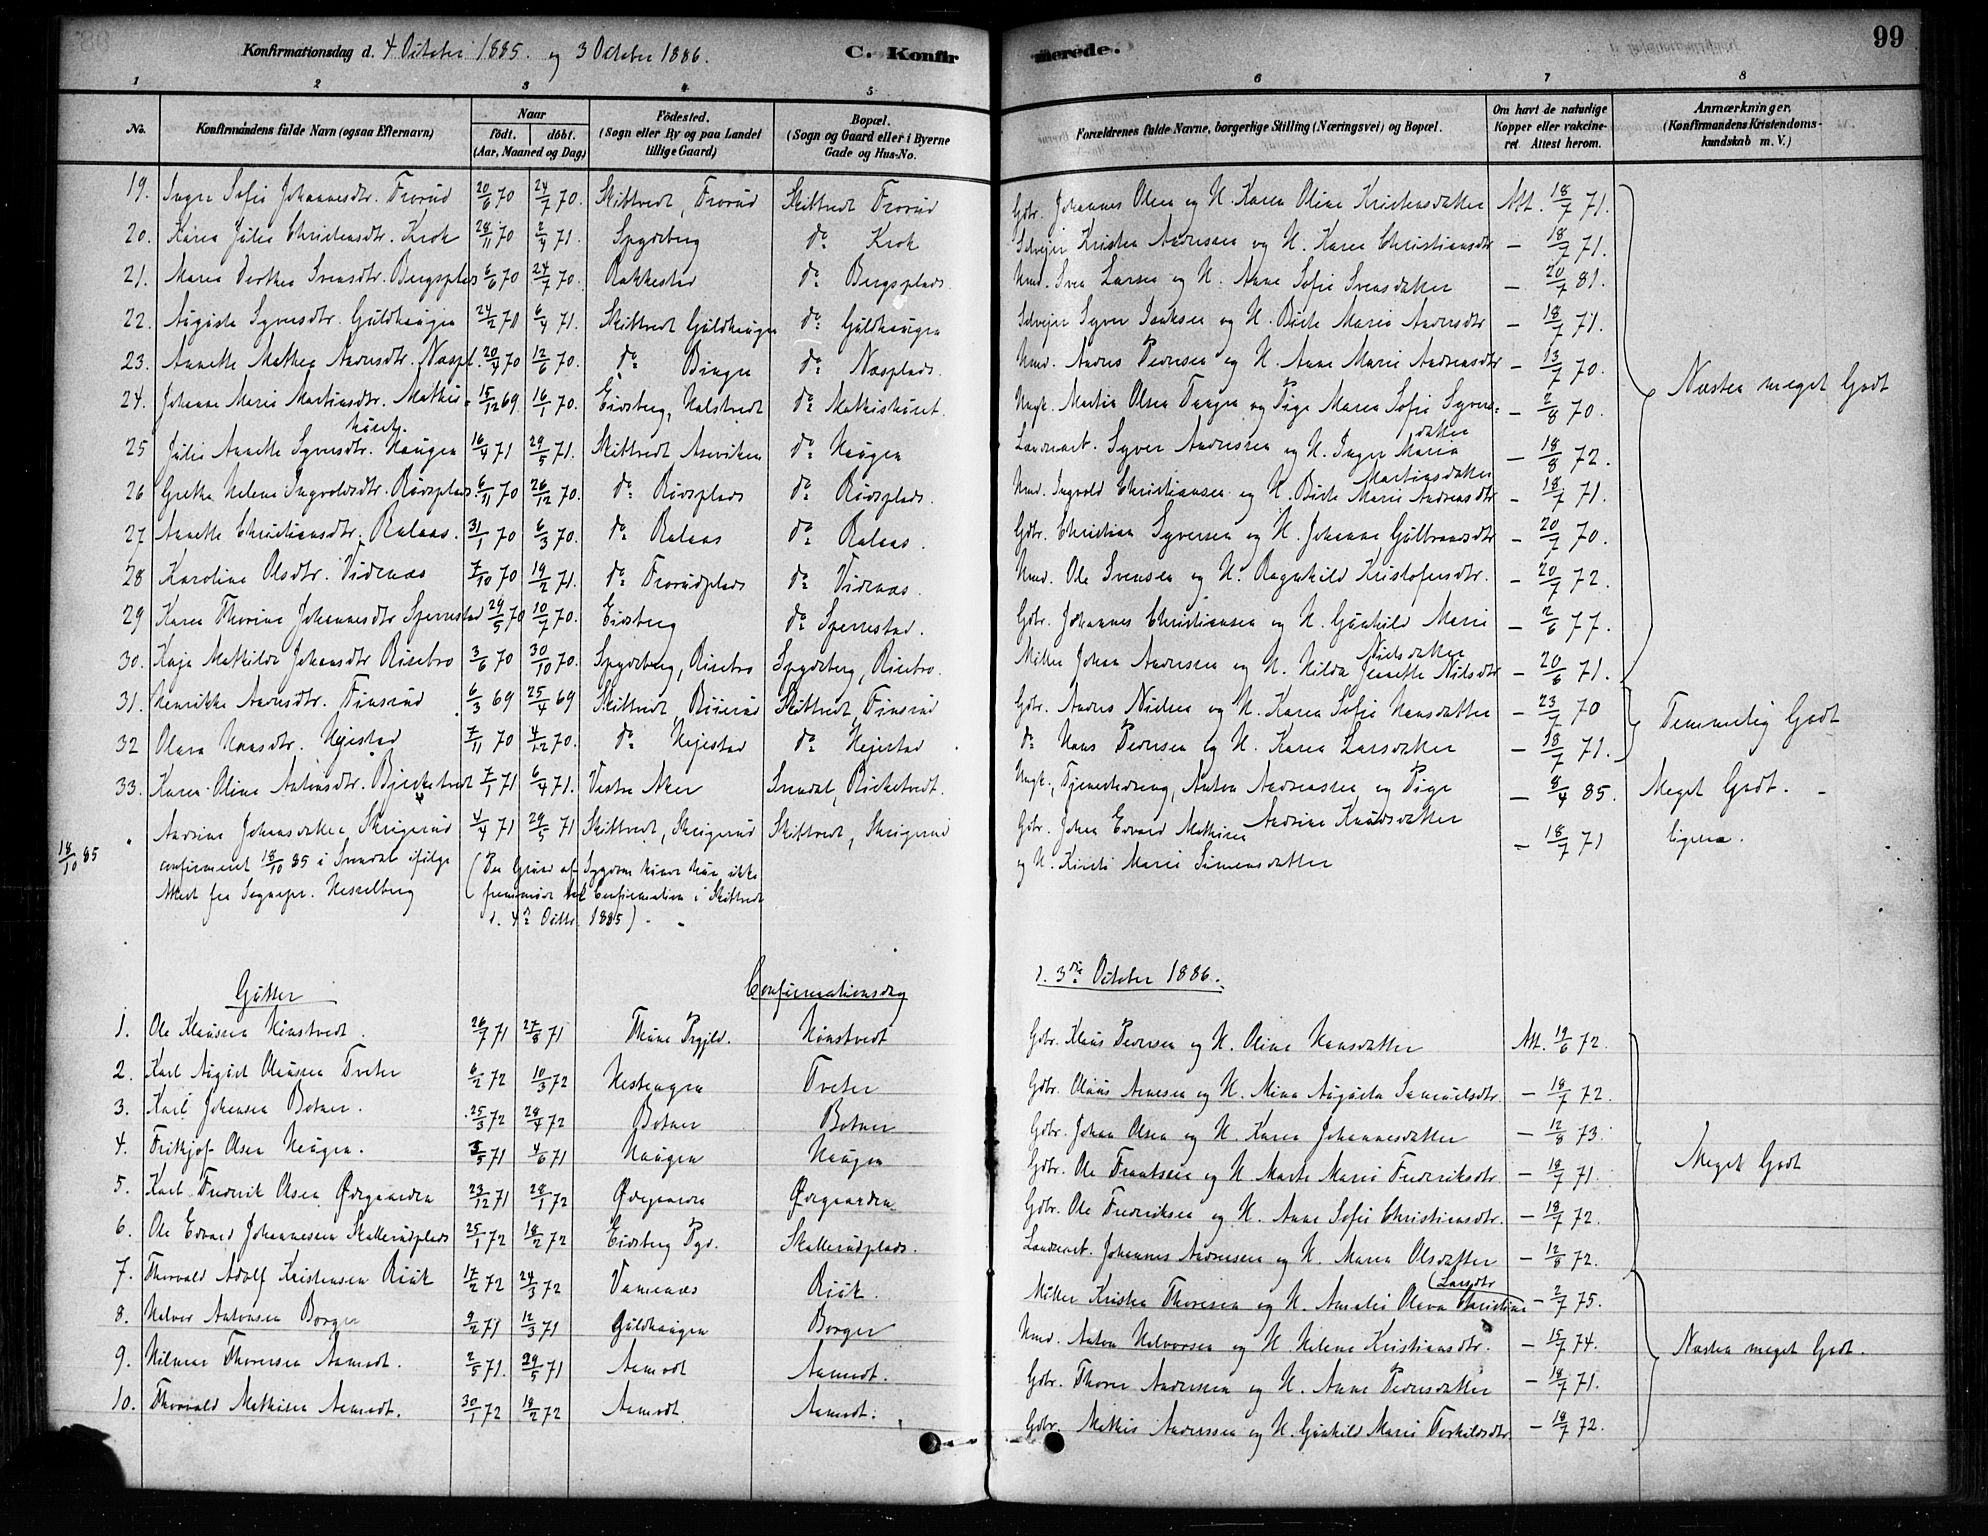 Konfirmationsdag d. 4 October 1885. og 3 October 1886. C. Konfirmerede. 99
1 2 3 4 5 6 7 8
No. Konfirmandens fulde Navn (ogsaa Efternavn) Naar født. døbt. (Aar, Maaned og Dag) Fødested. (Sogn eller By og paa Landet tillige Gaard) Bopæl. (Sogn og Gaard eller i Byerne Gade og Hus-No. Forældrenes fulde Navne, borgerlige Stilling (Næringsvei) og Bopæl. Om havt de naturlige Kopper eller vakcineret. Attest herom. Anmærkninger. (Konfirmandens Kristendomskundskab m. V.)
19. Inger Sofie Johannesdtr. Frorud 20/6 70 24/7 70. Skiptvedt, Frorud Skiptvedt Frorud Gdbr. Johannes Olsen og H. Karen Oline Kristensdatter Att. 18/7 71.
20. Karen Julie Christensdtr. Krok 28/11 70 2/4 71. Spydeberg do Krok Selveier Kristen Andersen og H. Karen Christiansdtr – 18/7 71.
21. Maren Dorthea Svensdtr. Bergsplads 6/6 70 24/7 70. Rakkestad do Bergsplads. Hmd. Sven Larsen og H. Anne Sofie Svensdatter – 20/7 81.
22. Augusta Syversdtr. Guldhaugen 24/2 71 6/4 71. Skiptvedt Guldhaugen do Guldhaugen Selveier Syver Isaksen og H. Birte Marie Andersdtr – 18/7 71.
23. Annette Mathea Andersdtr. Næspl. 20/4 70 12/6 70. do Binger do Næsplads. Hmd. Anders Pedersen og H. Anne Marie Andreasdtr – 13/7 70. Næsten meget Godt
24. Johanne Marie Martinsdtr. Mathishuset. 15/12 69 16/1 70. Eidsberg, Halstvedt do Mathishuset. Ungk. Martin Olsen og Pige Maren Sofie Syversdatter – 2/8 70.
25 Julie Annette Syversdtr. Haugen 16/4 71 29/5 71. Skiptvedt Aseviken do Haugen Landevert. Syver Andersen og H. Inger Maria Martinsdatter – 18/8 72.
26 Grethe Helene Ingvoldsdtr. Rødsplads. 6/11 70 26/12 70. do Rødsplads do Rødsplads. Hmd. Ingvold Christiansen og H. Birte Marie Andreasdtr – 18/7 71.
27 Annette Christiansdtr. Ralaas. 31/1 70 6/3 70. do Ralaas do Ralaas. Gdbr. Christian Syversen og H. Johanne Gulbrandsdtr – 20/7 70.
28 Karoline Olsdtr. Videnæs 7/10 70 19/2 71. do Frorudplads do Videnæs. Hmd. Ole Svensen og H. Ragnhild Kristofersdtr. – 20/7 72.
29 Karen Thorine Johannesdtr Sperrestad 29/5 70 10/7 70. Eidsberg do Sperrestad. Gdbr. Johannes Christiansen og H. Gunhild Marie Nielsdatter – 2/6 77.
30. Kaja Mathilde Johansdtr Risebro 3/6 70 30/10 70. Spydeberg, Risebro Spydeberg, Risebro. Møller Johan Andersen og H. Hilda Jeanette Nilsdtr – 20/6 71.
31. Henrikke Andersdtr. Finsrud 6/3 69 25/4 69 Skiptvedt Skiptvedt, Finsrud Gdbr. Anders Nielsen og H. Karen Sofie Hansdatter – 23/7 70 Temmelig Godt
32 Olava Hansdtr. Hejestad 7/11 70 4/12 70. do Hejestad do Hejestad. do Hans Pedersen og H. Karen Larsdatter – 18/7 71.
33. Karen Oline Antonsdtr. Bjerketvedt 7/1 71 6/4 71. Vestre Aker Svendal, Birketvedt. Ungk., Tjenestedreng, Anton Andreassen og Pige Andrine Knudsdatter – 8/4 85. Meget Godt. –
18/10 85 Andrine Johansdatter Skrigerud 4/4 71 29/5 71 Skiptvedt, Skrigerud Skiptvedt, Skrigerud Gdbr. Johan Edvard Mathisen og H. Kirsti Marie Simensdatter – 18/7 71 ligesaa.
confirmeret 18/10 85 i Svendal ifølge (Paa Grund af Sygdom kunde hun ikke
Attest fra Sognepr. Hesselberg fremmøde ved Confirmation i Skiptvedt
d. 4de Octbr. 1885).
Gutter Confirmationsdag d. 3die October 1886.
1. Ole Klausen Hunstvedt. 26/7 71 27/8 71 Thune Prgjld. Hunstvedt Gdbr. Klaus Pedersen og H. Oline Hansdatter Att. 19/6 72.
2. Karl August Olaussen Tveter 6/2 72 10/3 72 Hestengen Tveter Gdbr. Olaus Arnesen og H. Mina Augusta Samuelsdtr. – 18/7 72.
3. Karl Johansen Botner. 25/3 72 28/4 72 Botner Botner Gdbr. Johan Olsen og H. Karen Johannesdatter – 12/8 73.
4. Frithjof Olsen Haugen. 3/5 71 4/6 71 Haugen Haugen Gdbr. Ole Frantsen og H. Marte Marie Frederiksdtr. – 18/7 71. Meget Godt
5. Karl Fredrik Olsen Ødegaarden 23/12 71 28/1 72 Ødegaarden Ødegaarden. Gdbr. Ole Fredriksen og H. Anne Sofie Christiansdtr. – 18/7 72.
6. Ole Edvard Johannessen Skallerudplads 25/1 72 18/2 72 Eidsberg Pgd. Skallerudplads. Landevert. Johannes Andersen og H. Maren Olsdatter – 12/8 72.
7. Thorvald Adolf Kristensen Riik 17/2 72 24/3 72 Vamenæs Riik. Møller Kristen Thoresen og H. Amalie Olava Christine (Larsdtr – 2/7 75.
8. Halvor Antonsen Borger 9/2 71 12/3 71 Guldhaugen Borger Hmd. Anton Halvorsen og H. Helene Kristiansdtr. – 15/7 74. Næsten meget Godt.
9. Hilmar Thoresen Aamodt. 2/5 71. 29/5 71 Aamodt Aamodt. Gdbr. Thorer Anderssen og H. Anne Pedersdatter – 18/7 71.
10. Thorvald Mathisen Aamodt. 30/1 72 18/2 72 Aamodt Aamodt. Gdbr. Mathis Anderssen og H. Gunhild Marie Torkildsdtr. – 18/7 72.